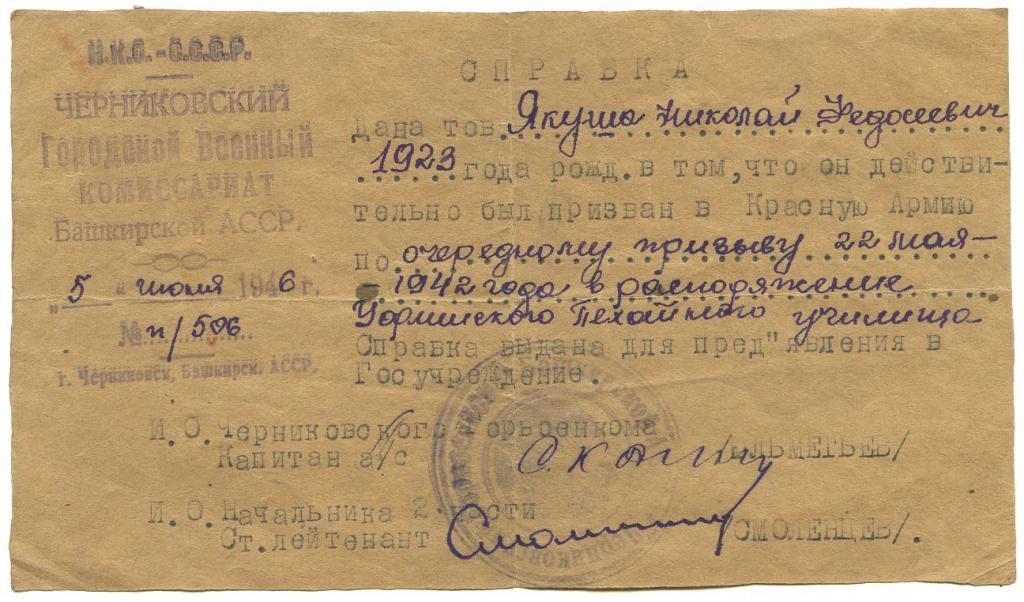 Н.К.О. - С.С.С.Р.
ЧЕРНИКОВСКИЙ
Городской Военный
КОМИССАРИАТ
Башкирской АССР.
„5" июня 1946 г.
№ п/506
г. Черниковск, Башкирск. АССР.
СПРАВКА
Дана тов. Якуша Николай Федосеевич
1923 года рожд. в том, что он действи-
тельно был призван в Красную Армию
по очередному призыву 22 мая-
-1942 года в распоряжение
Пехайного училища
Справка выдана для пред"явления в
Госучреждение.
И.О. Черниковского орвоенкома
Капитан а/с /ЕЛЬМЕТЬЕВ/
И.О. Начальника 2 части
Ст. лейтенант /СМОЛЕНЦЕВ/.